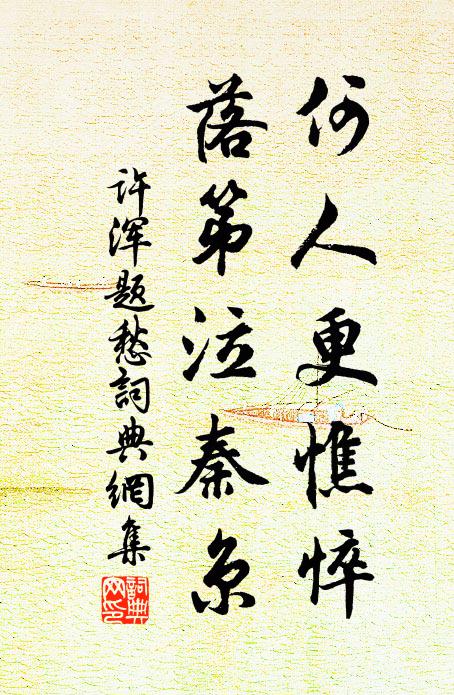 何人更憔悴
落第泣秦京
许浑题愁詞典網集
詞典网印